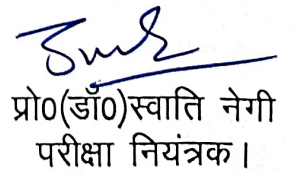 प्रो0(डॉ0)स्वाति नेगी
परीक्षा नियंत्रक।